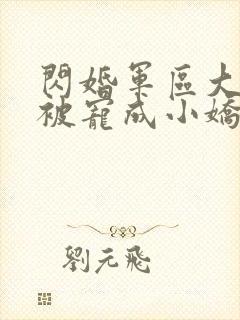 閃婚軍區大
被寵成小嬌
劉元飛